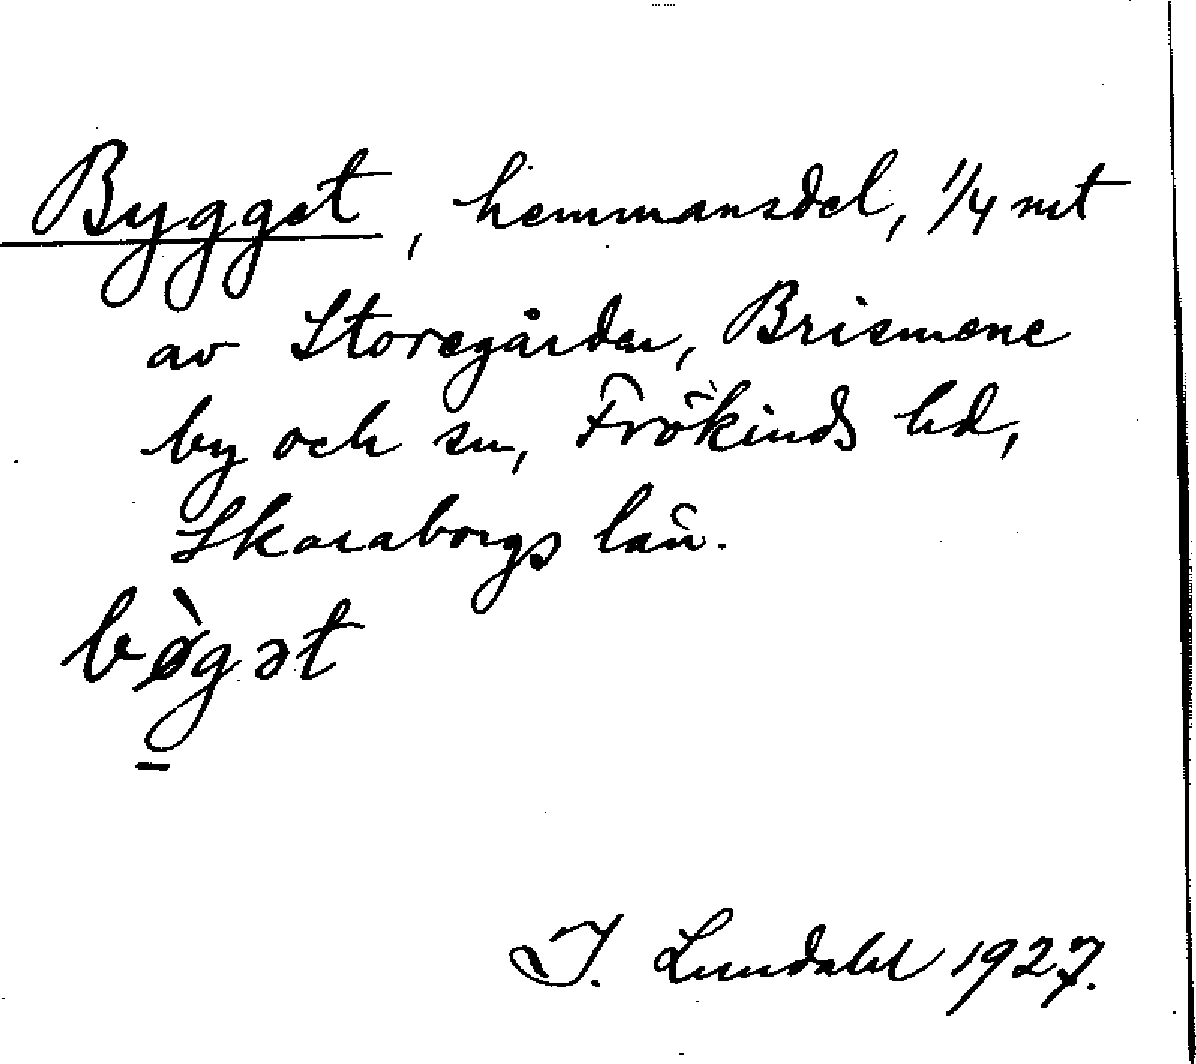 Bygget, hemmansdel, 1/4 mt
av Storegården, Brismene
by och sn, Frökinds hd,
Skaraborgs län.
bø̀gət
I. Lundahl 1927.